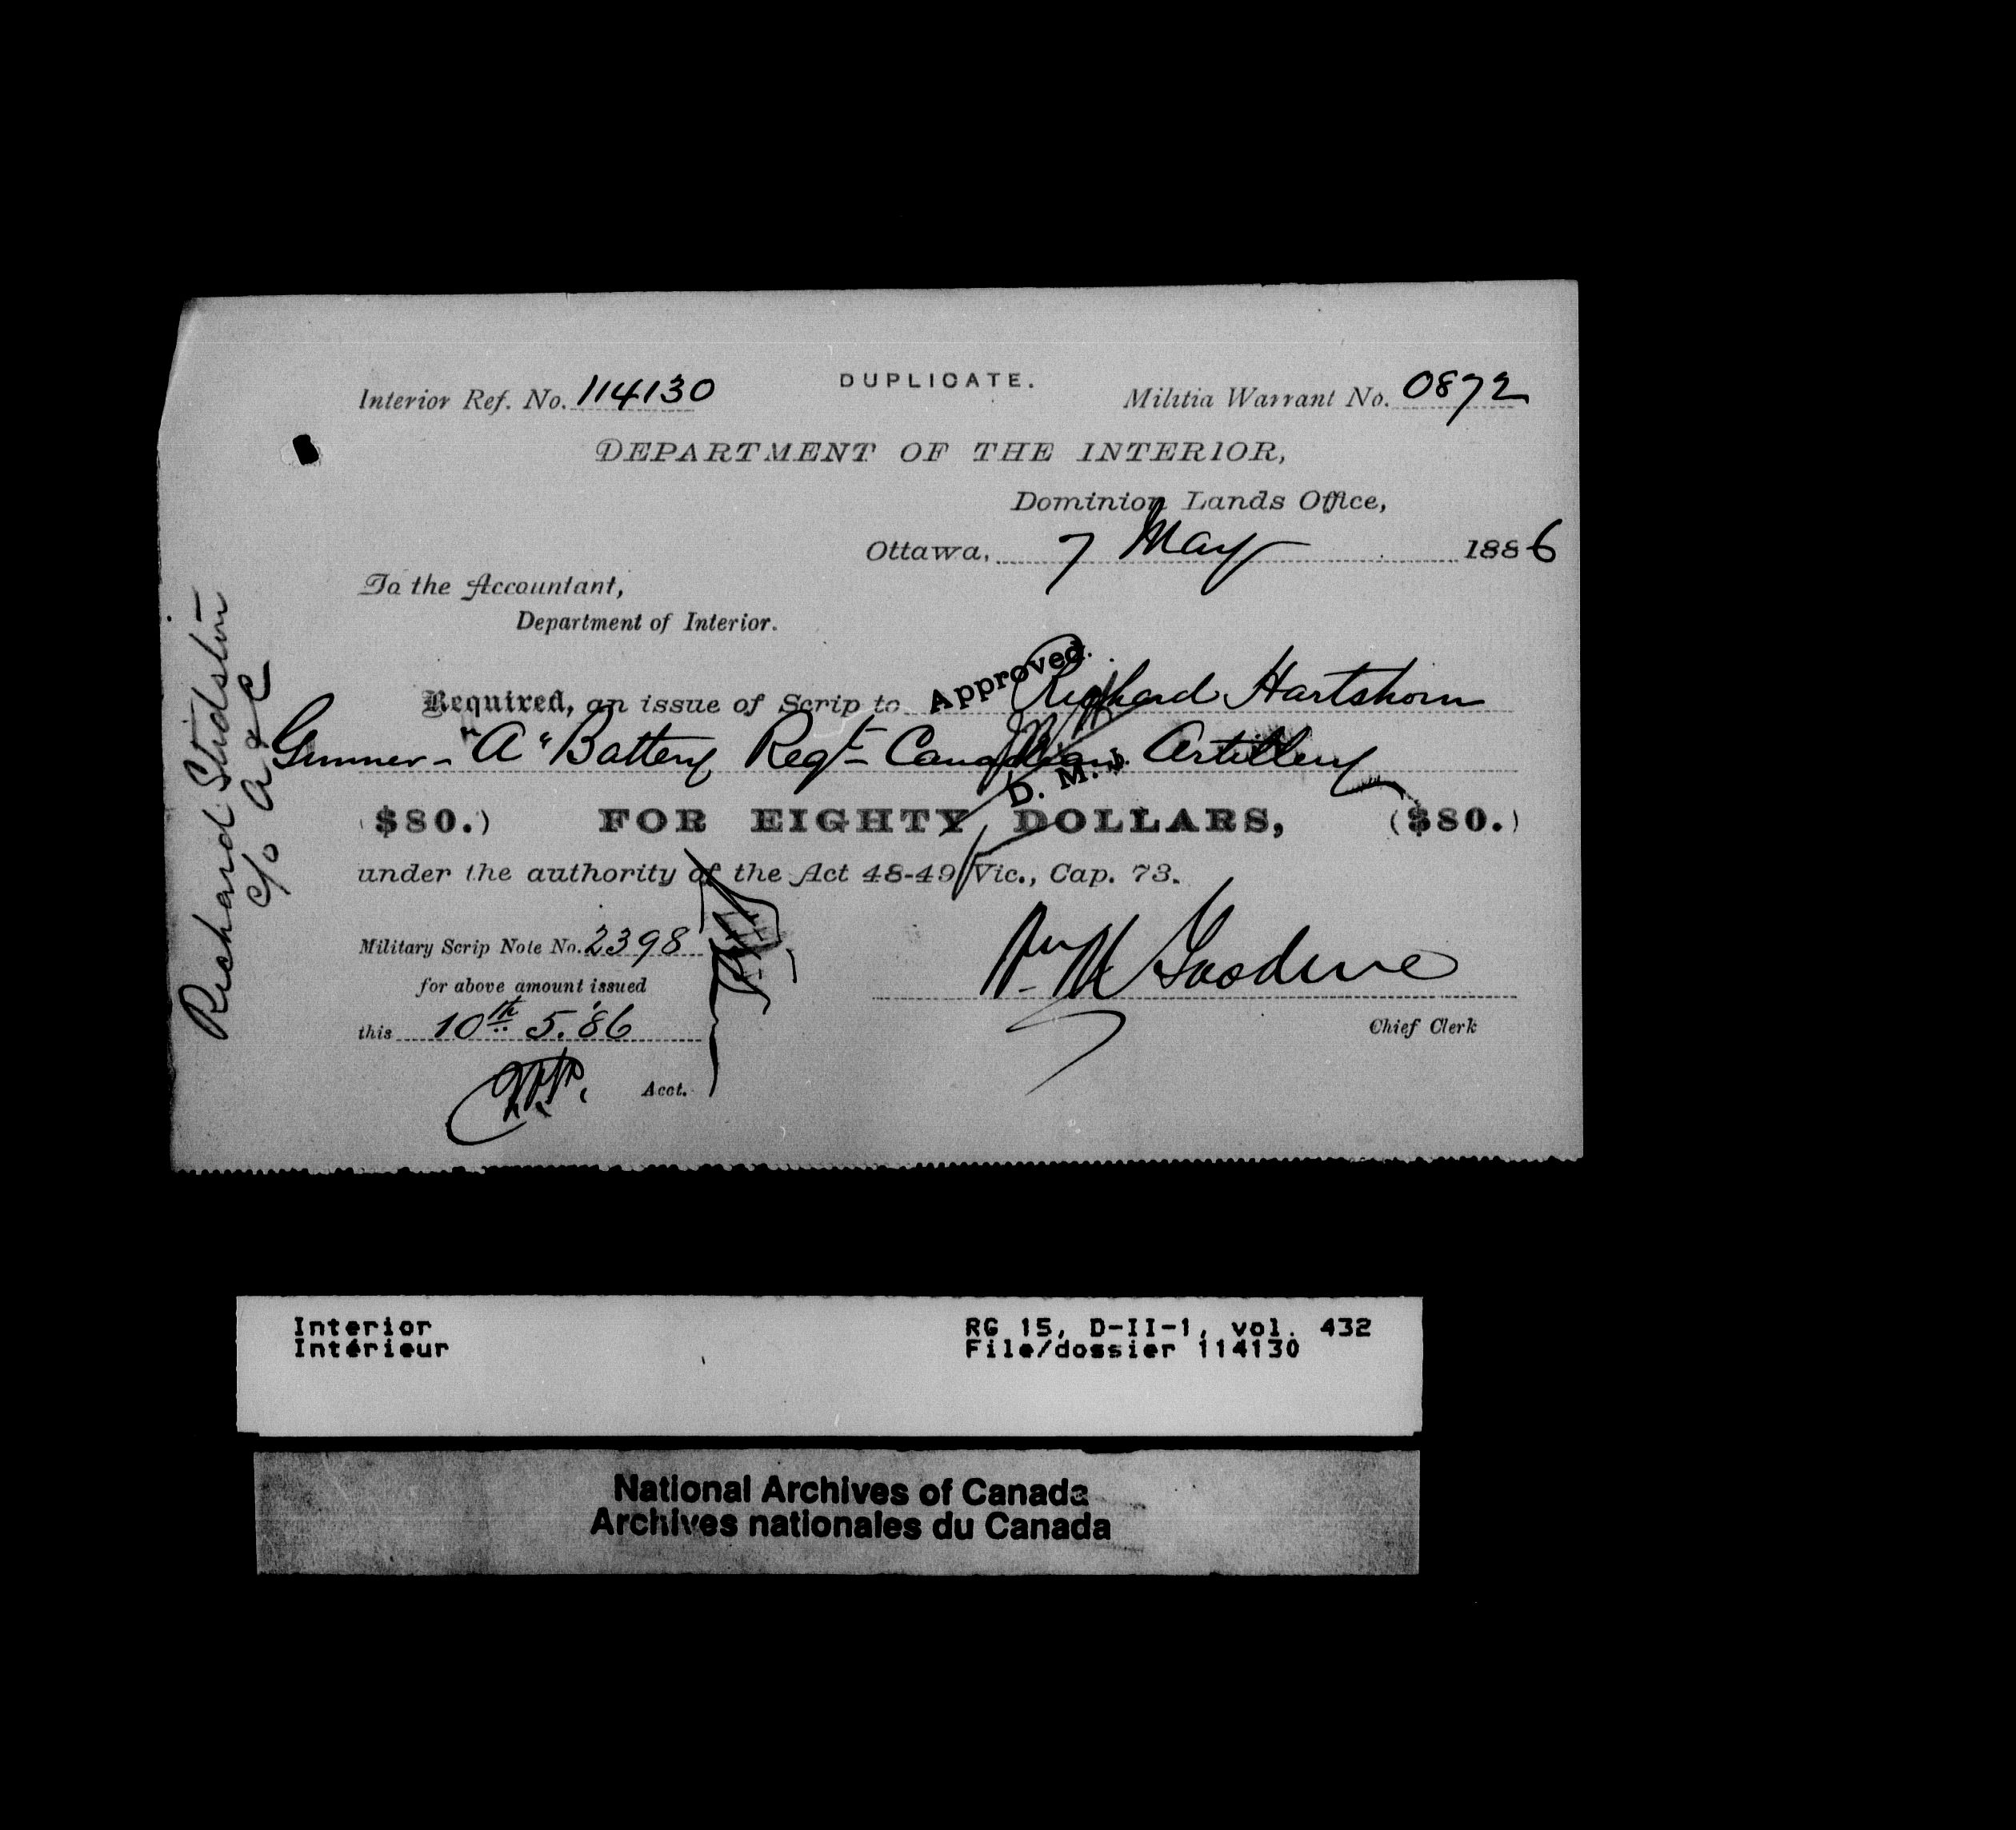 DUPLICATE.
Interior Ref. No. 114130
Militia Warrant No. 0872
DEPARTMENT OF THE INTERIOR,
Dominion Lands Office,
Ottawa, 7 May 1886
To the Accountant,
Department of Interior.
Approved.
Required, an issue of Scrip to Richard Hartshorn
Gunner - "A" Battery Regt Canadian Artillery
D. M. J.
($80.) FOR EIGHTY DOLLARS, ($80.)
under the authority of the Act 48-49 Vic., Cap. 73.
Military Scrip Note No. 2398
for above amount issued
this 10th 5. '86
Acct.
Chief Clerk
Richard
c/o A & C
Interior
Intérieur
RG 15, D-II-1, vol. 432
File/dossier 114130
National Archives of Canada
Archives nationales du Canada